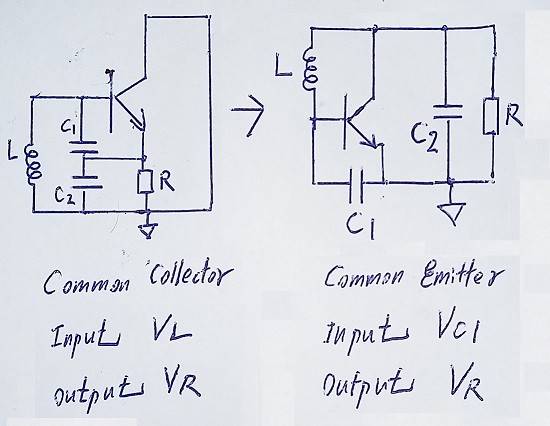 L
C1
C2
R
L
C2
R
C1
Common Collector
Input VL
Output VR
Common Emitter
Input VC1
Output VR